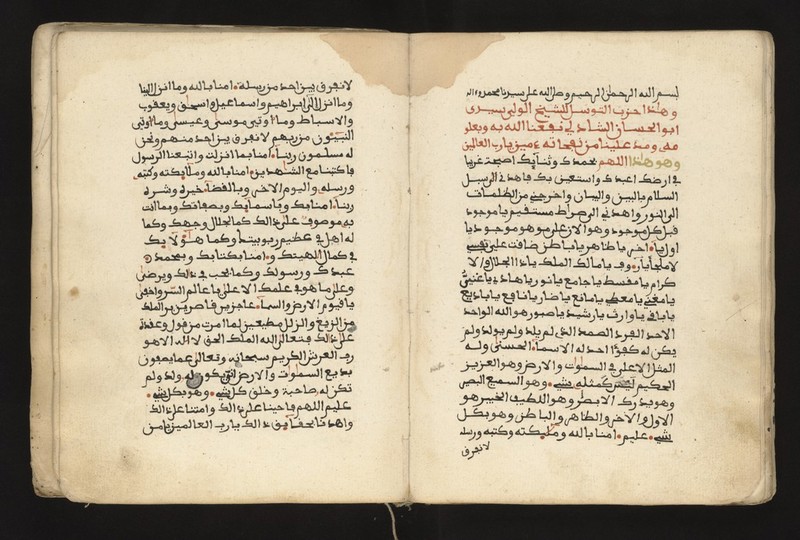 بسم الله الرحمن الرحيم وصل الله على سيدنا محمد وءاله
وهاذا حزب التوسل للشيخ الولي سيدي
ابو الحسان الشاذلي نفعنا الله به وبعلو
مه ومد علينا من نفحاته ءمين يارب العالمين
وهو هاذا اللهم بحمدك وثنايك اصبحت غريبا
في ارضك اعبدك واستعين بك فاهدني الرسيل
السلام باليمن واليمان واخرجني من الظلمات
الى النور واهدني الى صراط مستقيم يا موجود
قبل كل موجود وهو الان على ما هو موجود يا
اول يا اخر يا ظاهر يا باطن ضاقت على نفسي
لا ملجأ يا رءوف يا مالك الملك يا ذا الجلال والا
كرام يا مقسط يا جامع يا نور يا هادي يا غني
يا مغني يا معطي يا مانع يا ضار يا نافع يا بديع
يا باقي يا وارث يا رشيد يا صبور هو الله الواحد
الاحد الفرد الصمد الذي لم يلد ولم يولد ولم
يكن له كفؤا احد له الاسماء الحسنى وله
المثل الاعلى في السموات والارض وهو العزيز
الحكيم ليس كمثله شيء وهو السميع البصير
وهو يدرك الابصار وهو اللطيف الخبير هو
الاول والاخر والظاهر والباطن وهو بكل
شيء عليم امنا بالله ومليكته وكتبه ورسله
لا نفرق
لا نفرق بين احد من رسله امنا بالله وما انزل الينا
وما انزل الى ابراهيم واسماعيل واسحق ويعقوب
والاسباط وما اوتي موسى وعيسى وما اوتي
النبيئون من ربهم لا نفرق بين احد منهم ونحن
له مسلمون ربنا امنا بما انزلت واتبعنا الرسول
فاكتبنا مع الشهدين امنا بالله وملايكته وكتبه
ورسله واليوم الاخر وبالقضاء خيره وشره
ربنا امنا بك وباسمايك وبصفاتك وبما انت
به موصوف على ذالك كما لجلال وجهك وكما
له اهل في عظيم ربوبيتك وكما هو لا يك
في كمال الهيتك وامنا بكتابك وبمحمد
عبدك ورسولك وكما تحب في ذلك ويرضى
وعلى ما هو في علمك الاعلى يا عالم السر واخفى
يا قيوم الارض والسماء عاجزين قاصرين برا الملك
من الزيغ والزلل مطيعين لما امرت من قول وعقدة
على ذالك فتعالى الله الملك الحق لا اله الا هو
رب العرش الكريم سبحانه وتعالى عما يصفون
بديع السموات والارض انى يكون له ولد ولم
تكن له صاحبة وخلق كل شيء وهو بكل شيء
عليم اللهم فاحينا على ذالك وامتنا على ذالك
واهدنا بحقايق ذالك يا رب العالمين يا من